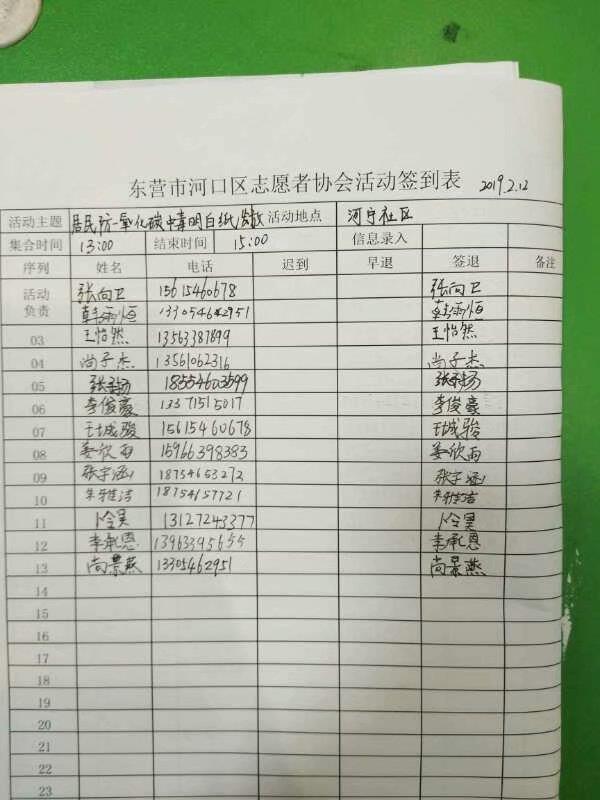 东营市河口区志愿者协会活动签到表 2019.2.12
活动主题 居民防一氧化碳中毒明白纸发放 活动地点 河宁社区
集合时间 13:00 结束时间 15:00 信息录入
序列 姓名 电话 迟到 早退 签退 备注
活动负责 张向卫 15615460678 张向卫
韩雨恒 韩雨恒
03 王怡然 13563387899 王怡然
04 尚子杰 13561062316 尚子杰
05 18554603599
06 李俊豪 13371515017 李俊豪
07 王城骏 15615460678 王城骏
08 姜欣雨 15966398383 姜欣雨
09 张宇涵 18754653273 张宇涵
10 朱雅洁 18754157721 朱雅洁
11 卜令昊 13127243377 卜令昊
12 李承恩 13963395655 李承恩
13 尚景燕 13305462951 尚景燕
14
15
16
17
18
19
20
21
22
23